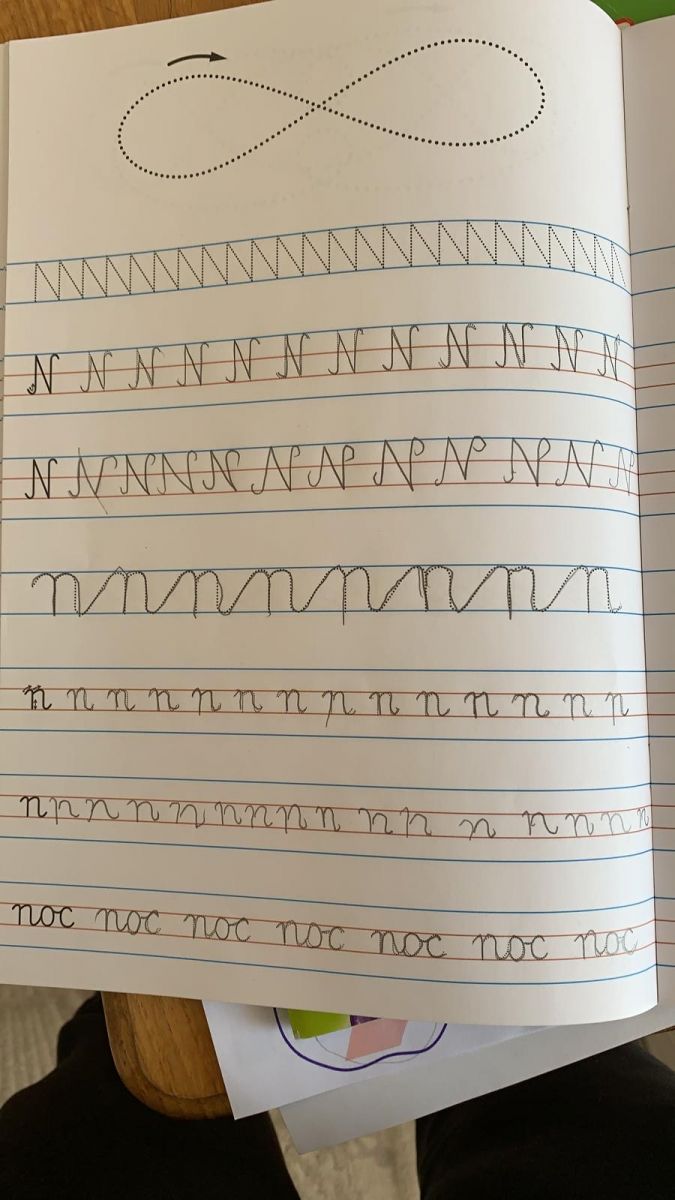 N N N N N N N N N N N N
N N N N N N N N N N N N
n n n n n n n n
n n n n n n n n n n n n n n
n n n n n n n n n n n n n n n n
noc noc noc noc noc noc noc